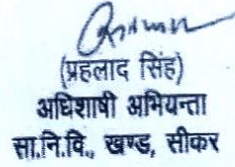 (प्रहलाद सिंह)
अधिशाषी अभियन्ता
सा.नि.वि., खण्ड, सीकर